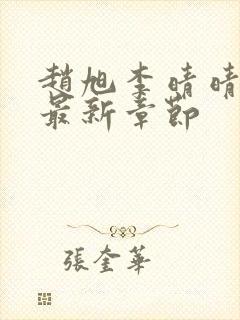 趙旭李晴晴
最新章節
張奎華